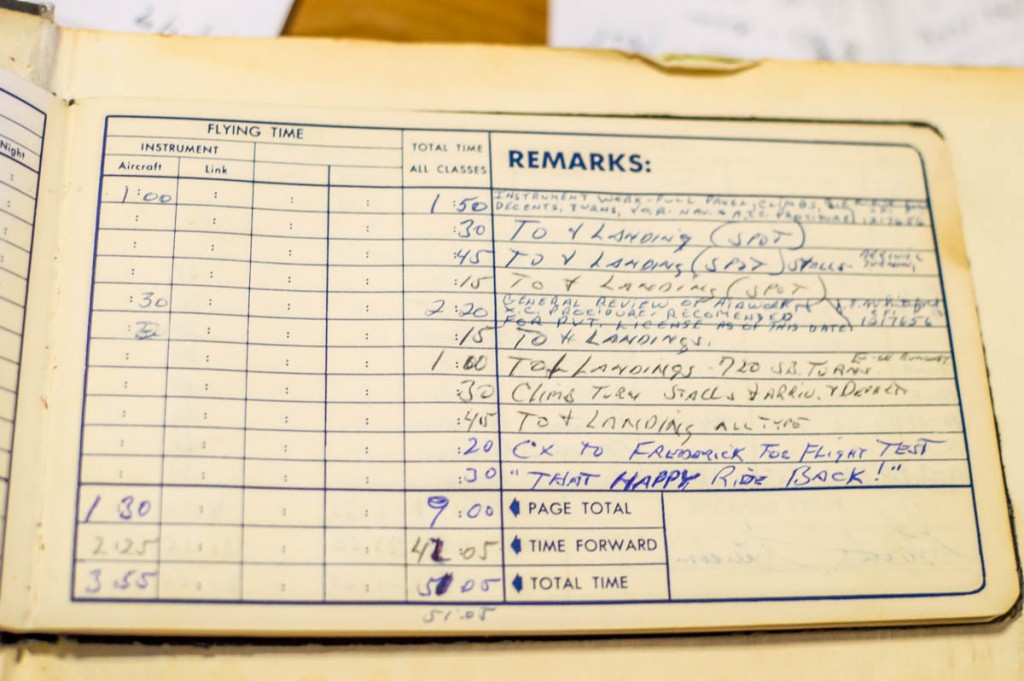 Night
FLYING TIME
INSTRUMENT
TOTAL TIME
ALL CLASSES
REMARKS:
Aircraft Link
1:00 1:50 INSTRUMENT WORK - FULL PANEL, CLIMBS,
DECENTS, TURNS, NAV. & A.T.C. PROCEDURE 1217656
:30 TO & LANDING (SPOT)
:45 TO & LANDING (SPOT) STALLS-
:15 TO & LANDING (SPOT)
:30 2:20 GENERAL REVIEW OF AIRWORK &
X.C. PROCEDURE, RECOMENDED
FOR PVT. LICENSE AS OF THIS DATE 1217656
:15 TO & LANDINGS.
1:00 TO & LANDINGS - 720 TURNS
:30 CLIMB TURN STALLS & ARRIV. & DEPART
:45 TO & LANDING ALL TYPE
:20 CX TO FREDERICK FOR FLIGHT TEST
:30 "THAT HAPPY RIDE BACK!"
1 30 9:00 PAGE TOTAL
2:25 42:05 TIME FORWARD
3:55 51:05 TOTAL TIME
51:05